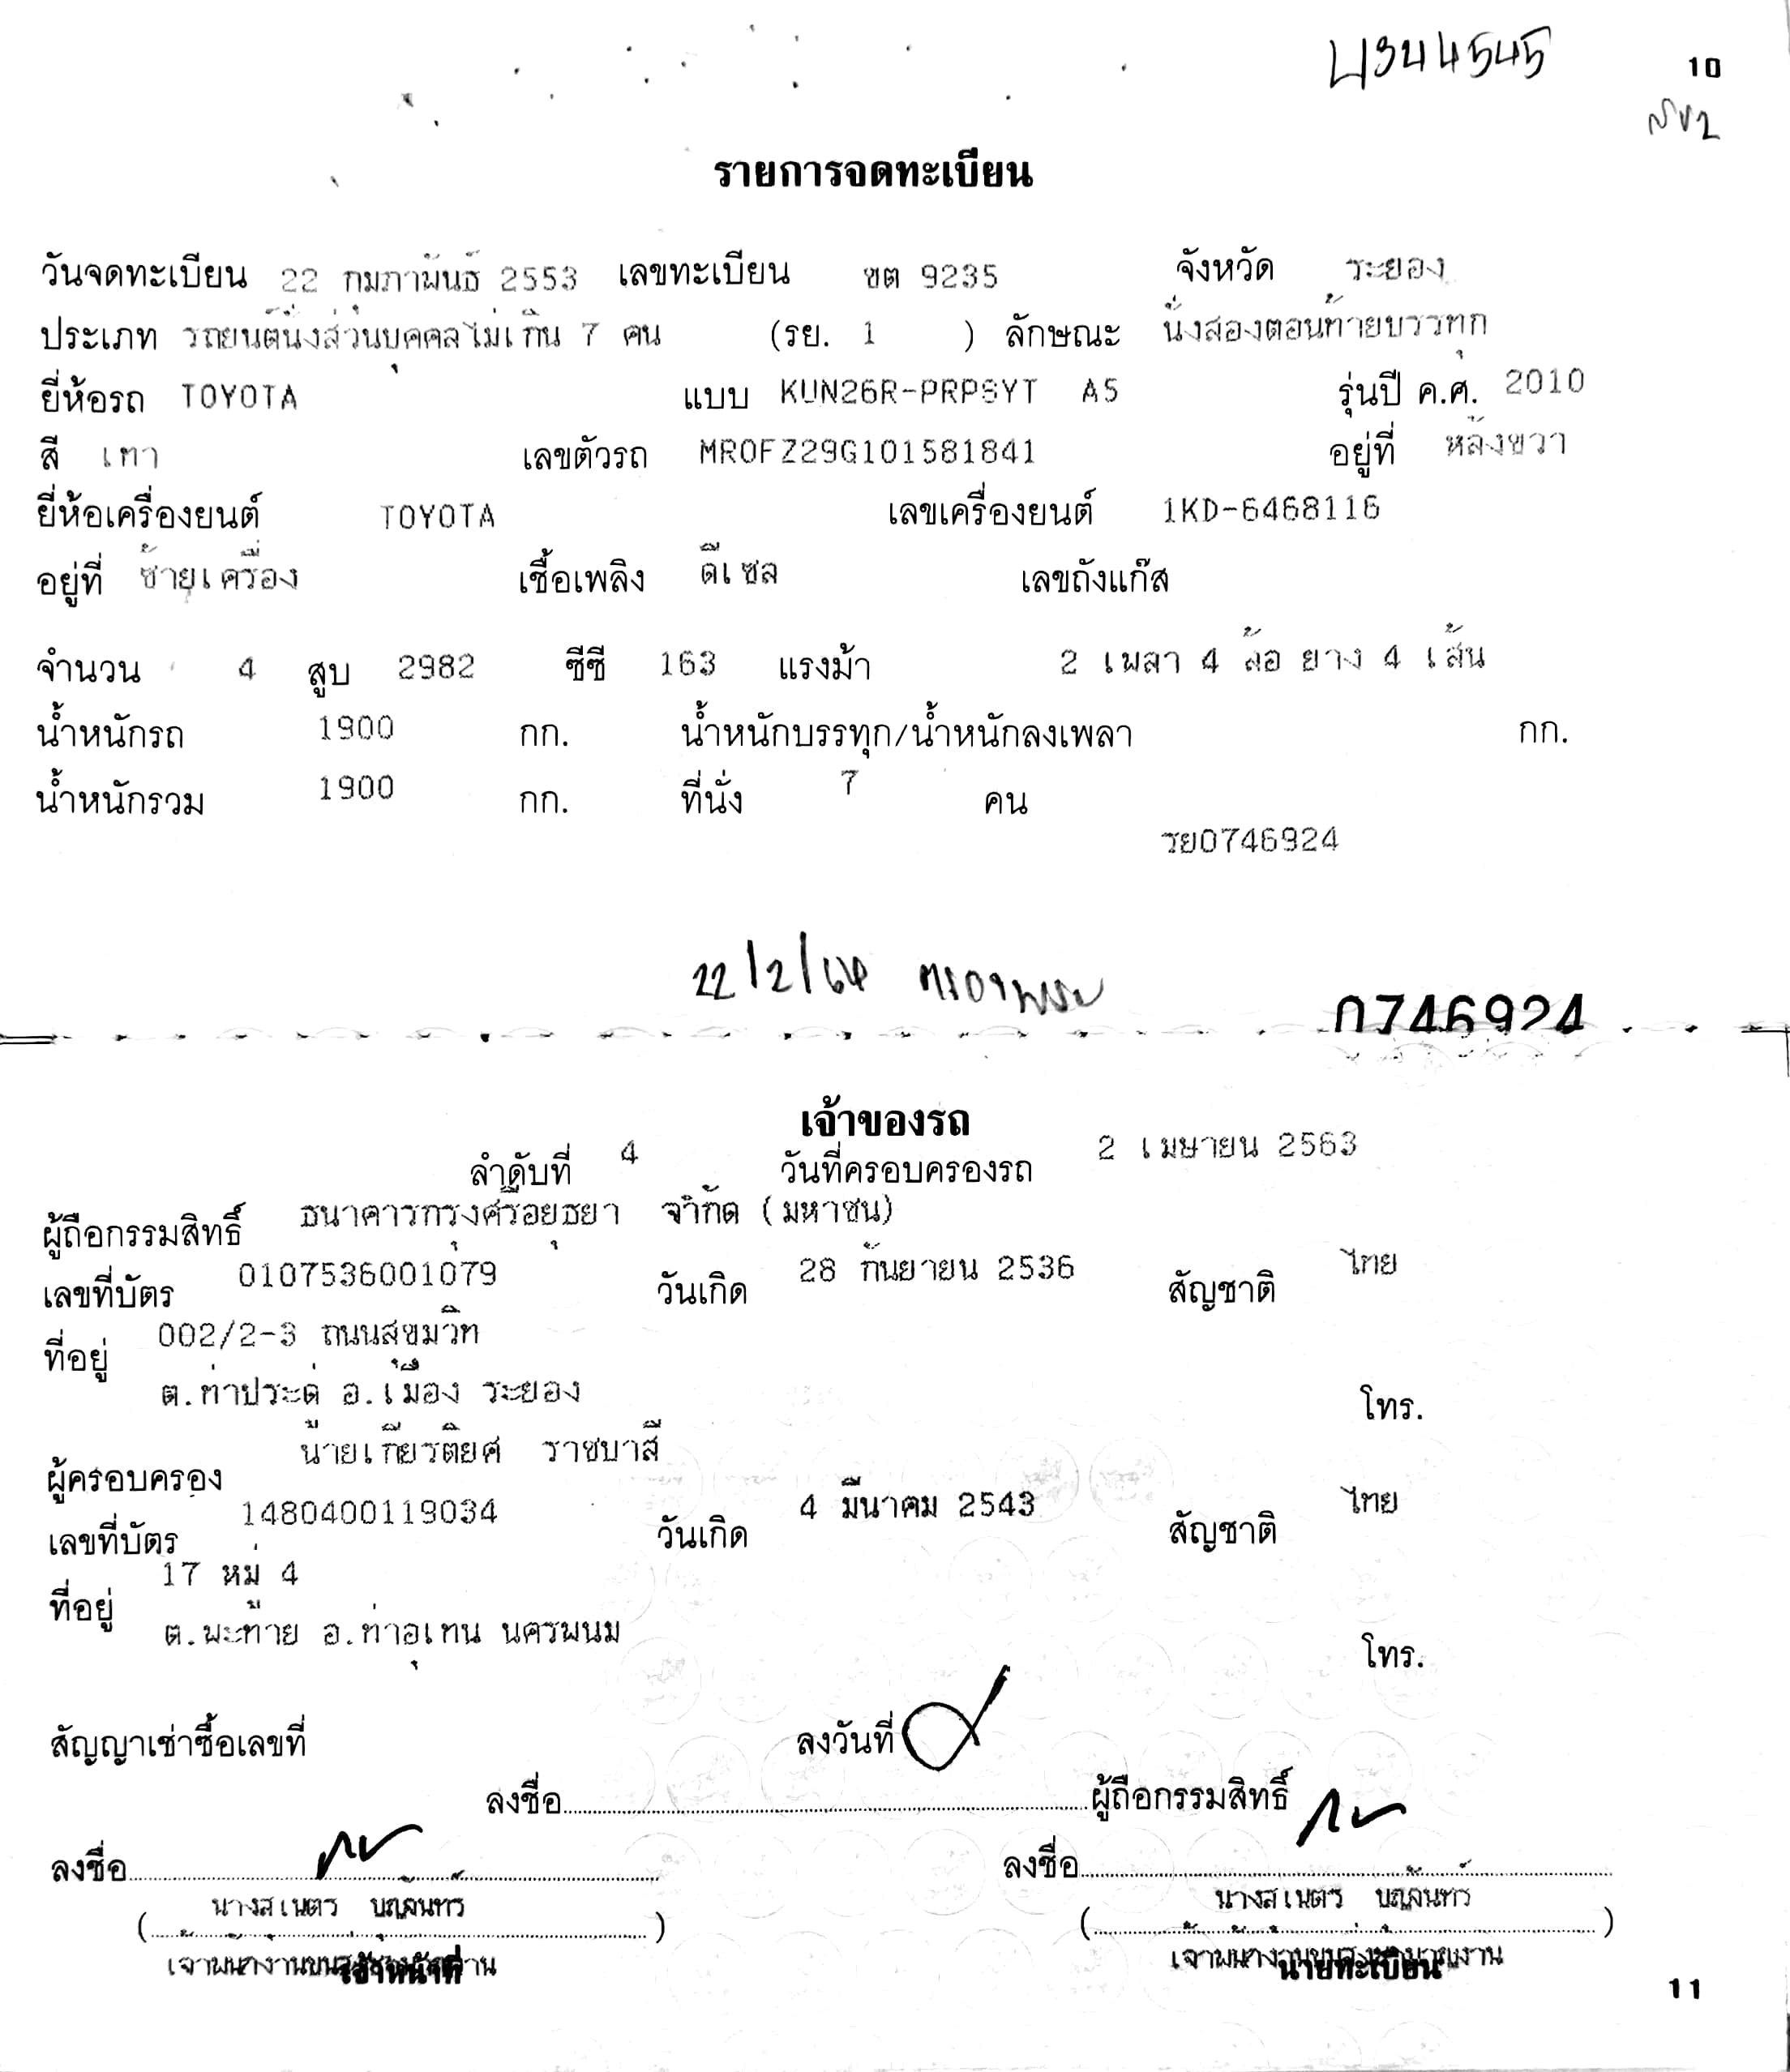 4344545
10
รายการจดทะเบียน
วันจดทะเบียน 22 กุมภาพันธ์ 2553 เลขทะเบียน ขต 9235 จังหวัด ระยอง
ประเภท รถยนต์นั่งส่วนบุคคลไม่เกิน 7 คน (รย. 1 ) ลักษณะ นั่งสองตอนท้ายบรรทุก
ยี่ห้อรถ TOYOTA แบบ KUN26R-PRPSYT A5 รุ่นปี ค.ศ. 2010
สี เทา เลขตัวรถ MROFZ29G101581841 อยู่ที่ หลังขวา
ยี่ห้อเครื่องยนต์ TOYOTA เลขเครื่องยนต์ 1KD-6468116
อยู่ที่ ซ้ายเครื่อง เชื้อเพลิง ดีเซล เลขถังแก๊ส
จำนวน 4 สูบ 2982 ซีซี 163 แรงม้า 2 เพลา 4 ล้อ ยาง 4 เส้น
น้ำหนักรถ 1900 กก. น้ำหนักบรรทุก/น้ำหนักลงเพลา กก.
น้ำหนักรวม 1900 กก. ที่นั่ง 7 คน
รย0746924
22/2/64
0746924
เจ้าของรถ
ลำดับที่ 4 วันที่ครอบครองรถ 2 เมษายน 2563
ผู้ถือกรรมสิทธิ์ ธนาคารกรุงศรีอยุธยา จำกัด (มหาชน)
เลขที่บัตร 0107536001079 วันเกิด 28 กันยายน 2536 สัญชาติ ไทย
ที่อยู่ 002/2-3 ถนนสุขุมวิท
ต.ท่าประดู่ อ.เมือง ระยอง โทร.
ผู้ครอบครอง นายเกียรติยศ ราชบาสี
เลขที่บัตร 1480400119034 วันเกิด 4 มีนาคม 2543 สัญชาติ ไทย
ที่อยู่ 17 หมู่ 4
ต.พะทาย อ.ท่าอุเทน นครพนม โทร.
สัญญาเช่าซื้อเลขที่ ลงวันที่
ลงชื่อ ผู้ถือกรรมสิทธิ์
ลงชื่อ ลงชื่อ
(นางสุเนตร บุญจันทร์) (นางสุเนตร บุญจันทร์)
เจ้าหน้าที่ นายทะเบียน
11